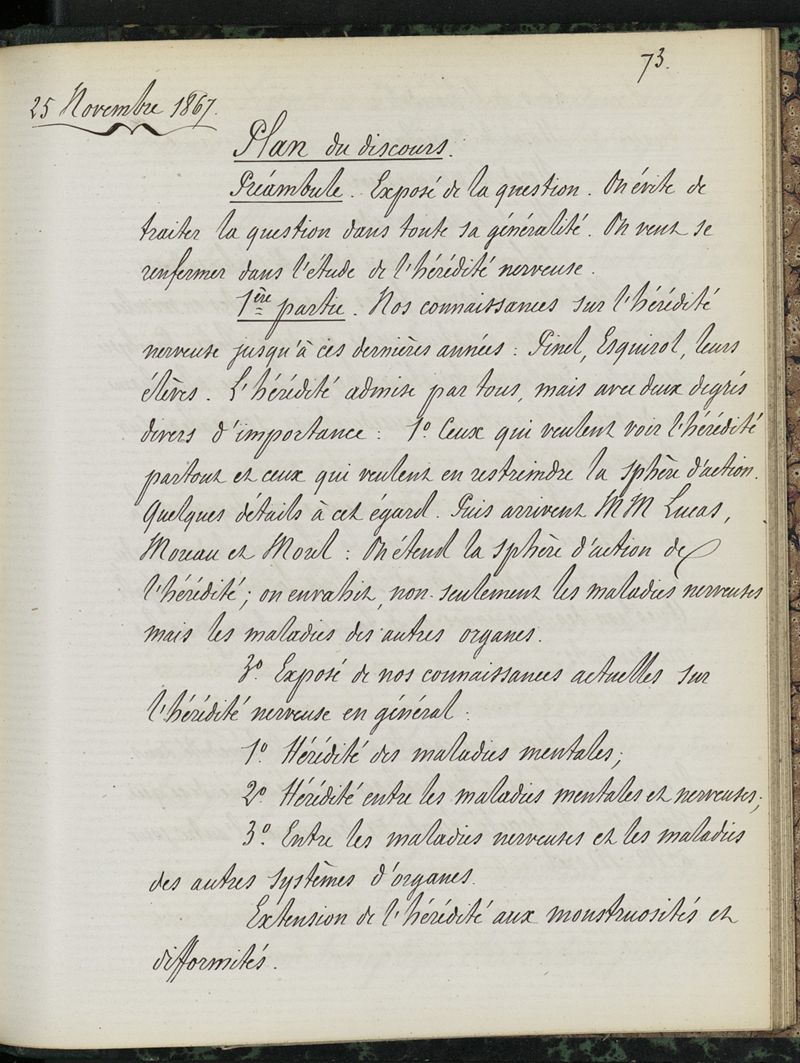 73.
25 Novembre 1867.
Plan du discours.
Préambule. Exposé de la question. On évite de
traiter la question dans toute sa généralité. On veut se
renfermer dans l'étude de l'hérédité nerveuse.
1ère partie. Nos connaissances sur l'hérédité
nerveuse jusqu'à ces dernières années : Pinel, Esquirol, leurs
élèves. L'hérédité admise par tous, mais avec deux degrés
divers d'importance : 1º Ceux qui veulent voir l'hérédité
partout et ceux qui veulent en restreindre la sphère d'action.
Quelques détails à cet égard. Puis arrivent MM Lucas,
Moreau et Morel : On étend la sphère d'action de
l'hérédité ; on envahit, non-seulement les maladies nerveuses
mais les maladies des autres organes.
3º Exposé de nos connaissances actuelles sur
l'hérédité nerveuse en général :
1º Hérédité des maladies mentales ;
2º Hérédité entre les maladies mentales et nerveuses ;
3º Entre les maladies nerveuses et les maladies
des autres systèmes d'organes.
Extension de l'hérédité aux monstruosités et
difformités.